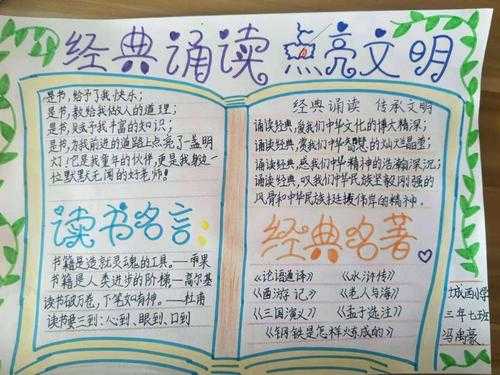 经典诵读 点亮文明
是书,给予了我快乐;
是书,教给我做人的道理;
是书,赋予我丰富的知识;
是书,为我前进的道路上点亮了一盏明
灯!它是我童年的伙伴,更是我身边一
位默默无闻的好老师!
读书名言
书籍是造就灵魂的工具。——雨果
书籍是人类进步的阶梯—高尔基
读书破万卷,下笔如有神。——杜甫
读书要三到:心到、眼到、口到
经典诵读 传承文明
诵读经典,爱我们中华文化的博大精深;
诵读经典,赏我们中华智慧的灿烂晶莹;
诵读经典,感我们中华精神的浩瀚深沉;
诵读经典,叹我们中华民族坚毅刚强的
风骨和中华民族挺拔伟岸的精神。
经典名著
《论语通译》 《水浒传》
《西游记》 《老人与海》
《三国演义》 《孟子选注》
《钢铁是怎样炼成的》
城西小学
三年七班
冯禹豪